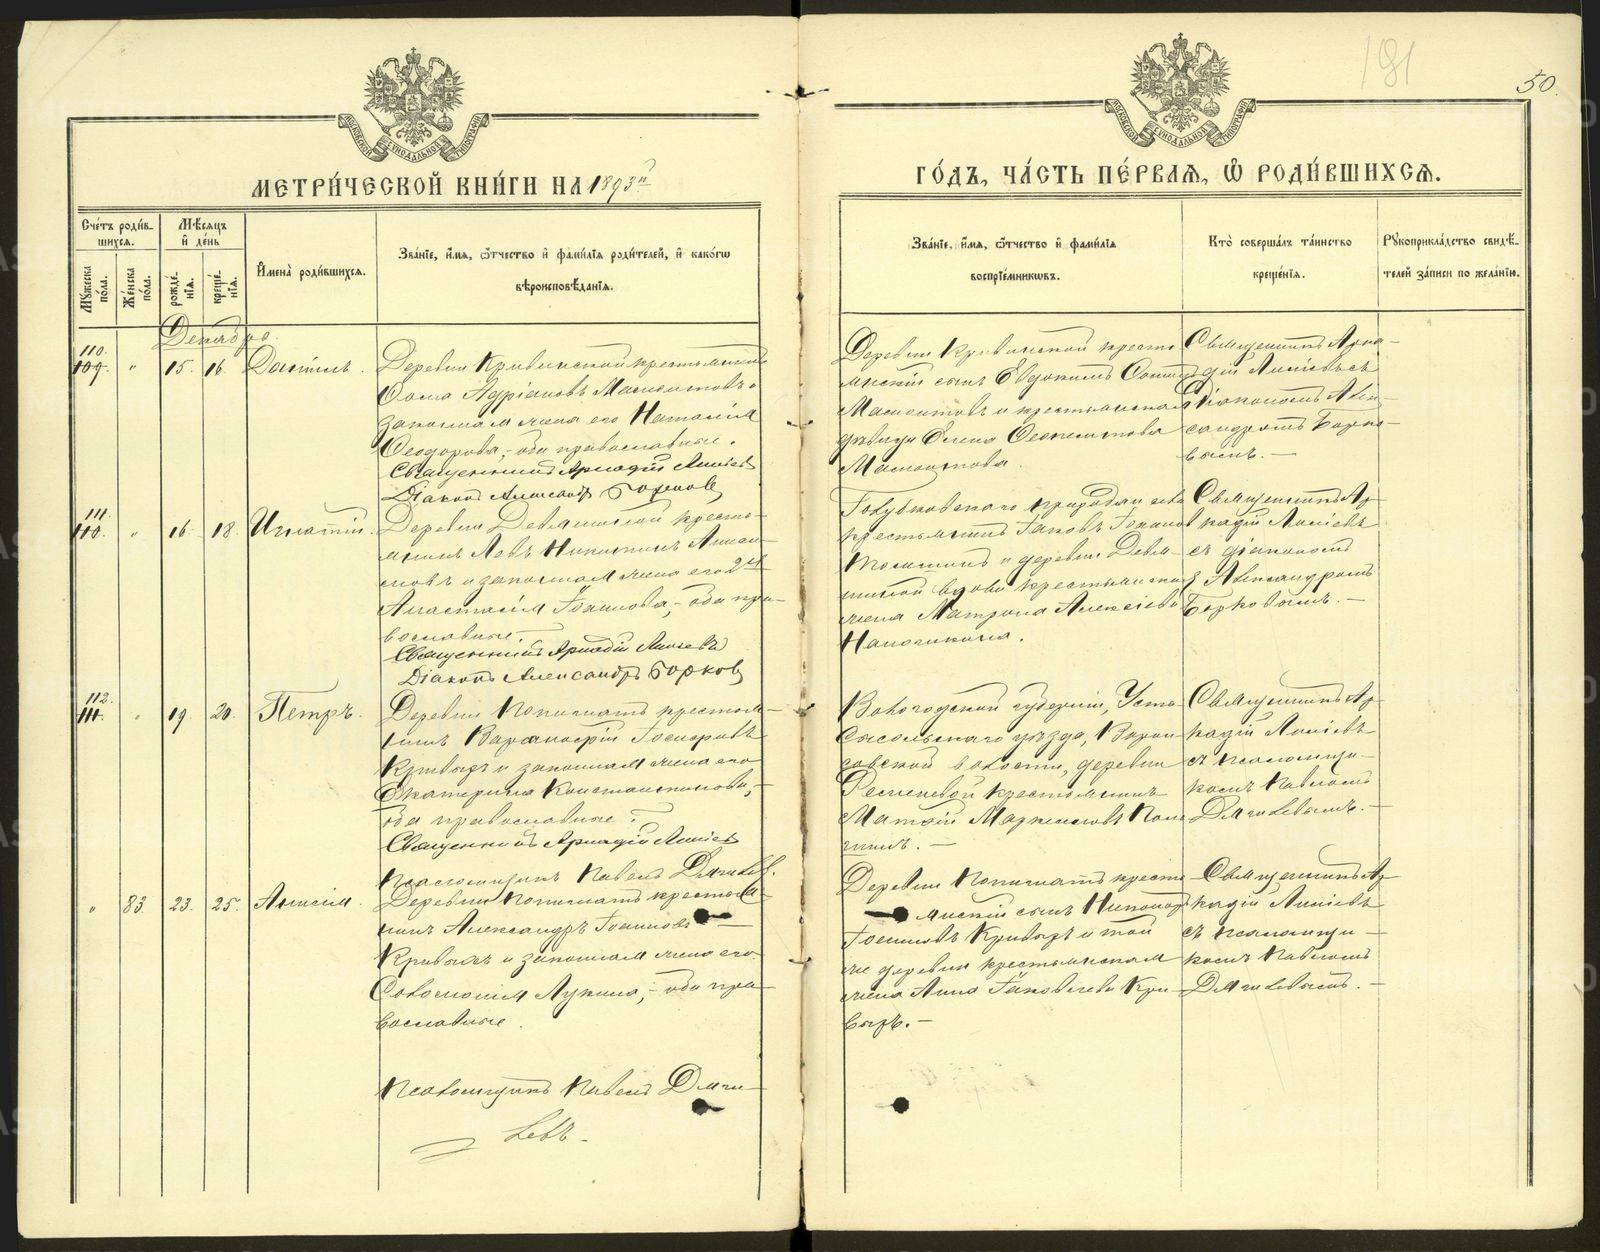 191
50.
МОСКОВСКОЙ СѴНОДАЛЬНОЙ ТИПОГРАФІИ
МОСКОВСКОЙ СѴНОДАЛЬНОЙ ТИПОГРАФІИ
МЕТРИ́ЧЕСКОЙ КНИ́ГИ НА 1893й
ГО́ДЪ, ЧА́СТЬ ПЕ́РВАѦ, Ѡ҆ РОДИ́ВШИХСѦ.
Сче́тъ роди́в-
шихся.
Мѣсяцъ
и҆ де́нь
Мꙋ́жеска по́ла.
Же́нска по́ла.
рожде́-нія.
креще́-нія.
И҆мена̀ роди́вшихся.
Зва́ніе, и҆́мя, ѻ҆́тчество и҆ фами́лія роди́телей, и҆ како́гѡ
вѣроисповѣ́данія.
Зва́ніе, и҆́мя, ѻ҆́тчество и҆ фами́лія
воспріе́мникѡвъ.
Кто̀ соверша́лъ та́инство
креще́нія.
Рꙋкоприкла́дство свидѣ́-
телей за́писи по жела́нію.
Декабрь
110.
109. " 15. 16. Даніилъ.
Деревни Кривинской крестьянинъ
Ѳома Адріановъ Мамонтовъ и
законная жена его Наталія
Ѳеодорова, оба православные.
Священникъ Аркадій Анисіевъ
Діаконъ Александръ Борковъ
Деревни Кривинской кресть-
янскій сынъ Евдокимъ
Мамонтовъ и крестьянская
дѣвица Елена
Мамонтова.
Священникъ Арка-
дій Анисіевъ съ
Діакономъ Алек-
сандромъ Борко-
вымъ. —
111.
110. " 16. 18. Игнатій.
Деревни Девятковой кресть-
янинъ Левъ Никитинъ
и законная жена его 2я
Анастасія Іоаннова, оба пра-
вославные.
Священникъ Аркадій Анисіевъ
Діаконъ Александръ Борковъ
Голубковскаго прихода, села
крестьянинъ Іаковъ
и деревни Девят-
ковой вдова крестьянская
жена Матрона Алексіева
Священникъ Ар-
кадій Анисіевъ
съ діакономъ
Александромъ
Борковымъ. —
112.
111. " 19. 20. Петръ.
Деревни крестья-
нинъ
Кривыхъ и законная жена его
Екатерина Константинова,
оба православные.
Священникъ Аркадій Анисіевъ
Псаломщикъ Павелъ Дягилевъ.
Вологодской губерніи, Усть-
сысольскаго уѣзда,
волости, деревни
крестьянинъ
Матѳій
Священникъ Ар-
кадій Анисіевъ
съ псаломщи-
комъ Павломъ
Дягилевымъ. —
" 83. 23. 25. Анисія.
Деревни крестья-
нинъ Александръ Іоанновъ
Кривыхъ и законная жена его
Соломонія Лукина, оба пра-
вославные.
Псаломщикъ Павелъ Дяги-
левъ.
Деревни кресть-
янскій сынъ Никаноръ
Іоанновъ Кривыхъ и той
же деревни крестьянская
жена Анна Іаковлева Кри-
выхъ. —
Священникъ Ар-
кадій Анисіевъ
съ псаломщи-
комъ Павломъ
Дягилевымъ. —